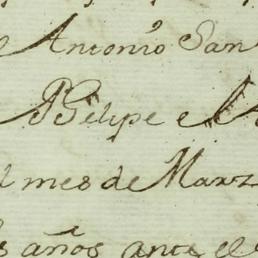 Antonio San
Phelipe el
l mes de Marz
s años ante el